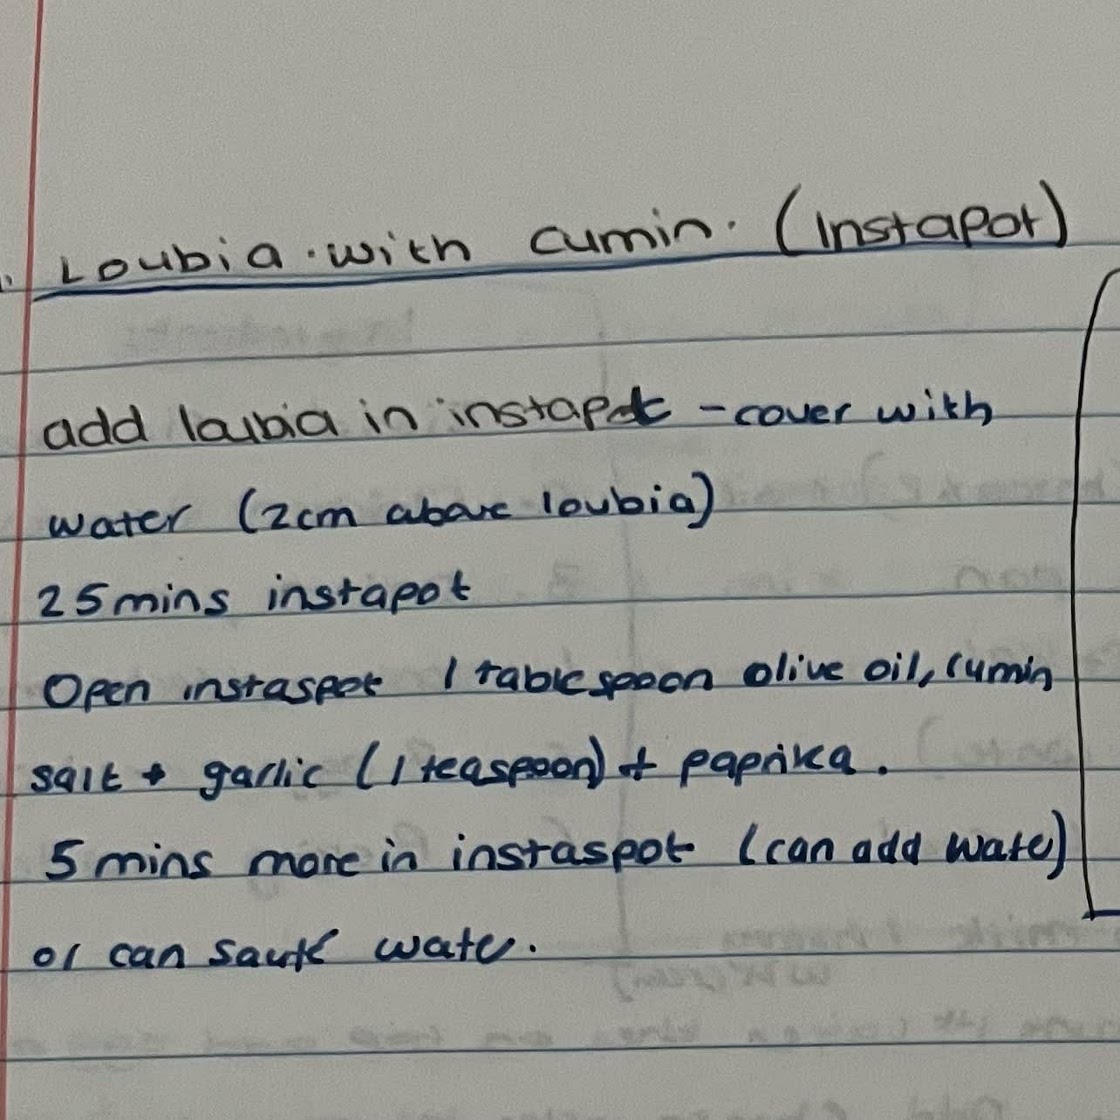 Loubia with cumin. (Instapot)
add loubia in instapot - cover with
water (2cm above loubia)
25mins instapot
Open instaspot 1 tablespoon olive oil, cumin
salt + garlic (1 teaspoon) + paprika.
5 mins more in instaspot (can add water)
or can sauté water.